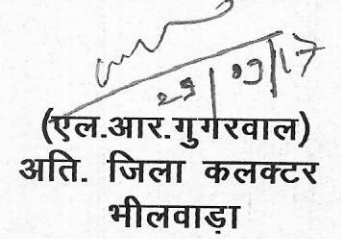 29/09/17
(एल.आर.गुगरवाल)
अति. जिला कलक्टर
भीलवाड़ा